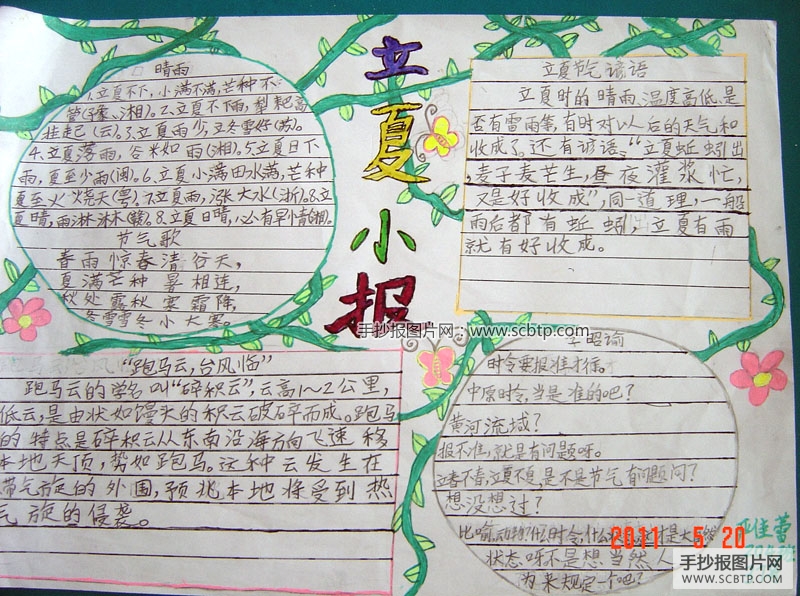 立夏小报
晴雨
1.立夏不下，小满不满，芒种不
管(豫、湘)。2.立夏不下雨，犁耙高
挂起(云)。3.立夏雨少，立冬雪好(苏)。
4.立夏落雨，谷米如雨(湘)。5.立夏日下
雨，夏至少雨(闽)。6.立夏小满田水满，芒种
夏至火烧天(粤)。7.立夏雨，涨大水(浙)。8.立
夏晴，雨淋淋(赣)。8.立夏日晴，必有旱情(湘)。
节气歌
春雨惊春清谷天，
夏满芒种暑相连，
秋处露秋寒霜降，
冬雪雪冬小大寒。
立夏节气谚语
立夏时的晴雨、温度高低、是
否有雷雨等，有时对以后的天气和
收成了。还有谚语：“立夏蚯蚓出
，麦子麦芒生，昼夜灌浆忙，
又是好收成”，同一道理，一般
雨后都有蚯蚓出，立夏有雨
就有好收成。
手抄报图片网：www.scbtp.com
“跑马云，台风临”
跑马云的学名叫“碎积云”，云高1~2公里，
低云，是由状如馒头的积云破碎而成。跑马
的特点是碎积云从东南沿海方向飞速移
本地天顶，势如跑马。这种云发生在
带气旋的外围，预兆本地将受到热
气旋的侵袭。
时令要报准才行。
中原时令，当是准的吧？
黄河流域？
报不准，就是有问题呀。
立春不春，立夏不夏，是不是节气有问题问？
想没想过？
状态呀不是想当然人
为来规定一个吧？
2011 5 20
手抄报图片网
WWW.SCBTP.COM